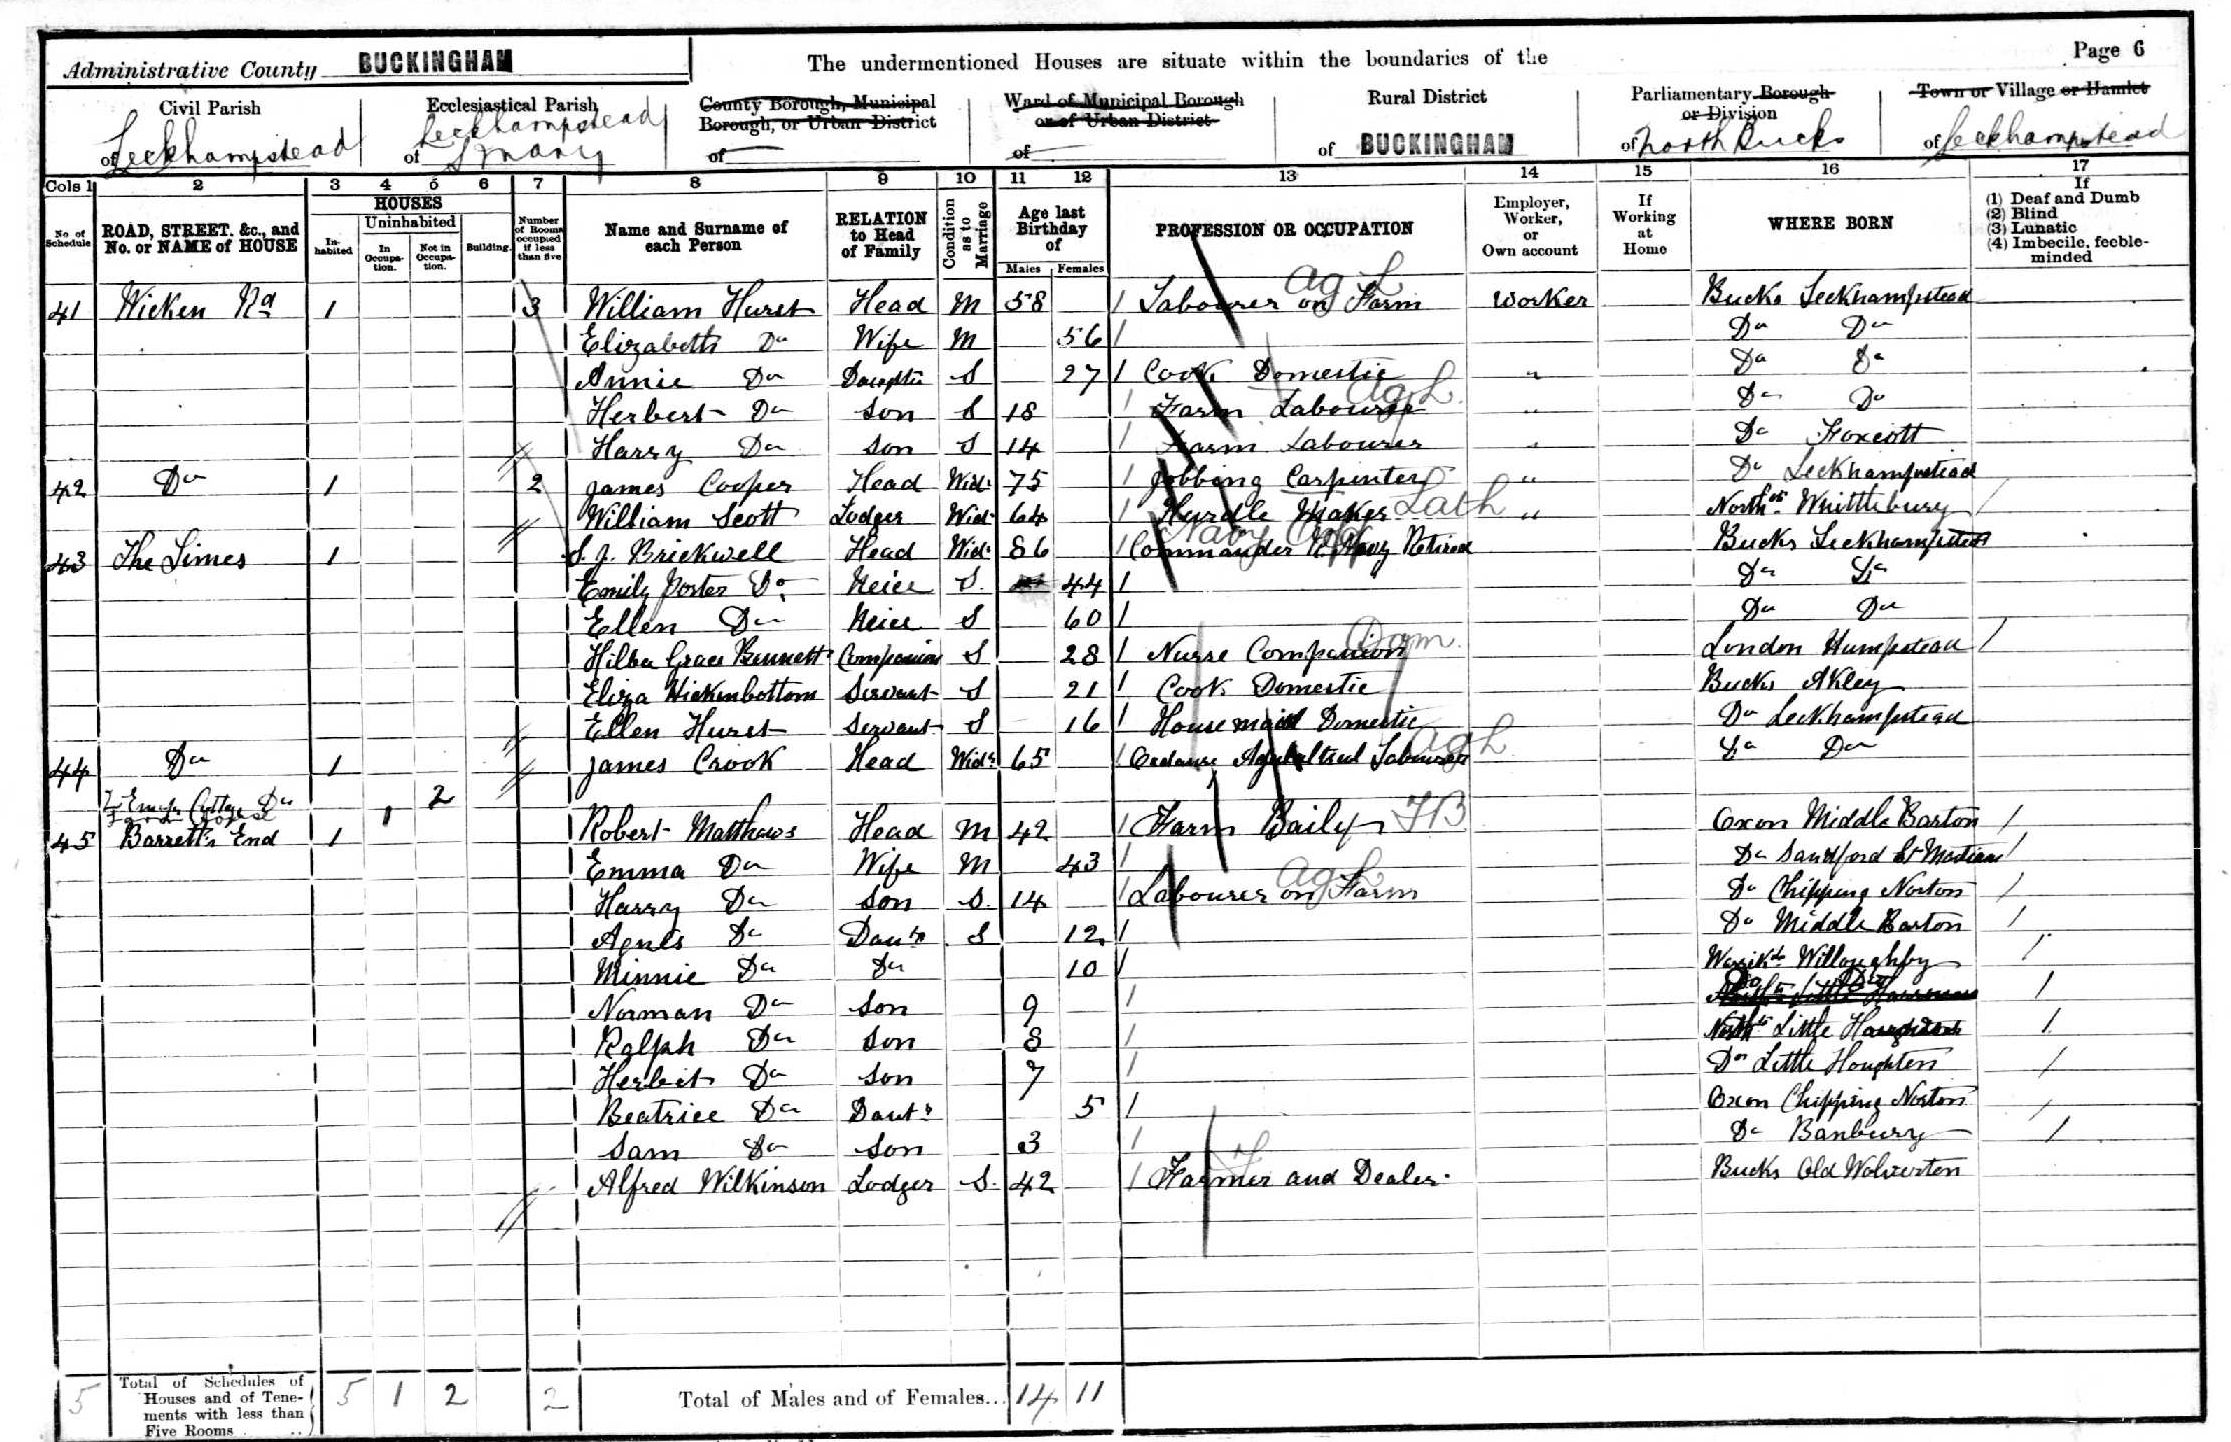 Administrative County BUCKINGHAM
The undermentioned Houses are situate within the boundaries of the
Page 6
Civil Parish
of Leckhampstead
Ecclesiastical Parish
of Leckhampstead
S Mary
County Borough, Municipal
Borough, or Urban District
of
Ward of Municipal Borough
or of Urban District
of
Rural District
of BUCKINGHAM
Parliamentary Borough
or Division
of North Bucks
Town or Village or Hamlet
of Leckhampstead
Cols 1 2 3 4 5 6 7 8 9 10 11 12 13 14 15 16 17
No. of Schedule
ROAD, STREET, &c., and
No. or NAME of HOUSE
HOUSES
Inhabited
Uninhabited
In Occupation.
Not in Occupation.
Building.
Number of Rooms occupied if less than five
Name and Surname of
each Person
RELATION
to Head
of Family
Condition as to Marriage
Age last
Birthday
of
Males Females
PROFESSION OR OCCUPATION
Employer,
Worker,
or
Own account
If
Working
at
Home
WHERE BORN
If
(1) Deaf and Dumb
(2) Blind
(3) Lunatic
(4) Imbecile, feeble-
minded
41 Wicken Rd 1 3 William Hurst Head M 58 Labourer on Farm Ag L Worker Bucks Leckhampstead
Elizabeth Do Wife M 56 Do Do
Annie Do Daughter S 27 Cook Domestic " Do Do
Herbert Do Son S 18 Farm Labourer Ag L " Do Do
Harry Do Son S 14 Farm Labourer " Do Foxcott
42 Do 1 2 James Cooper Head Widr 75 Jobbing Carpenter " Do Leckhampstead
William Scott Lodger Widr 64 Hurdle Maker Lath " Northts Whittlebury
43 The Limes 1 S. J. Brickwell Head Widr 86 Commander R Navy Retired Bucks Leckhampstead
Emily Porter Do Neice S. 44 Do Do
Ellen Do Neice S 60 Do Do
Hilda Grace Bennett Companion S 28 Nurse Companion Dom. London Hampstead
Eliza Hickenbottom Servant S 21 Cook Domestic Bucks Akley
Ellen Hurst Servant S 16 Housemaid Domestic Do Leckhampstead
44 Do 1 James Crook Head Widr 65 Agricultural Labourer Ag L Do Do
Do 1 2
45 Barretts End 1 Robert Matthews Head M 42 Farm Baily FB Oxon Middle Barton
Emma Do Wife M 43 Do Sandford St Martin
Harry Do Son S. 14 Labourer on Farm Ag L Do Chipping Norton
Agnes Do Daur S 12 Do Middle Barton
Minnie Do Do 10 Warwks Willoughby
Norman Do Son 9 Do Do
Ralph Do Son 8 Northts Little
Herbert Do Son 7 Do Little Houghton
Beatrice Do Dautr 5 Oxon Chipping Norton
Sam Do Son 3 Do Banbury
Alfred Wilkinson Lodger S. 42 Farmer and Dealer. F Bucks Old Wolverton
5 Total of Schedules of
Houses and of Tene-
ments with less than
Five Rooms
5 1 2 2 Total of Males and of Females... 14 11